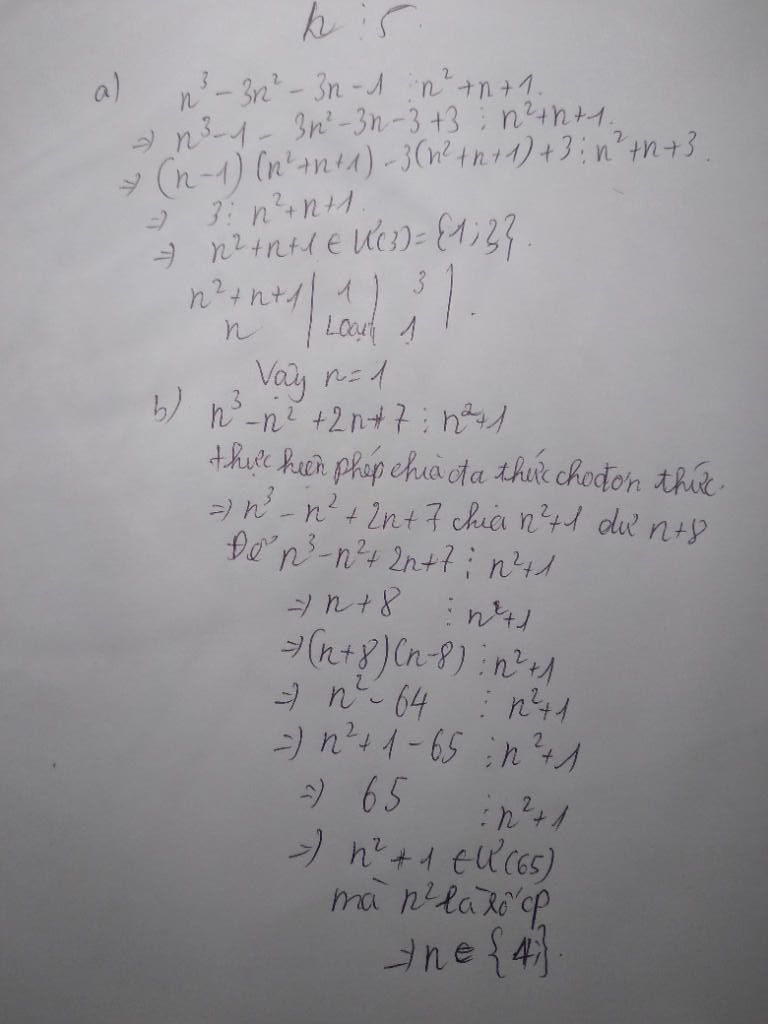 n ⋮ 5.
a) n³ - 3n² - 3n - 1 ⋮ n² + n + 1.
=> n³ - 1 - 3n² - 3n - 3 + 3 ⋮ n² + n + 1.
=> (n - 1)(n² + n + 1) - 3(n² + n + 1) + 3 ⋮ n² + n + 3.
=> 3 ⋮ n² + n + 1.
=> n² + n + 1 ∈ Ư(3) = {1; 3}.
n² + n + 1 | 1 | 3 |
n | Loại | 1 | .
Vậy n = 1
b) n³ - n² + 2n + 7 ⋮ n² + 1
thực hiện phép chia đa thức cho đơn thức.
=> n³ - n² + 2n + 7 chia n² + 1 dư n + 8
Để n³ - n² + 2n + 7 ⋮ n² + 1
=> n + 8 ⋮ n² + 1
=> (n + 8)(n - 8) ⋮ n² + 1
=> n² - 64 ⋮ n² + 1
=> n² + 1 - 65 ⋮ n² + 1
=> 65 ⋮ n² + 1
=> n² + 1 ∈ Ư(65)
mà n² là số cp
=> n ∈ {4;}.